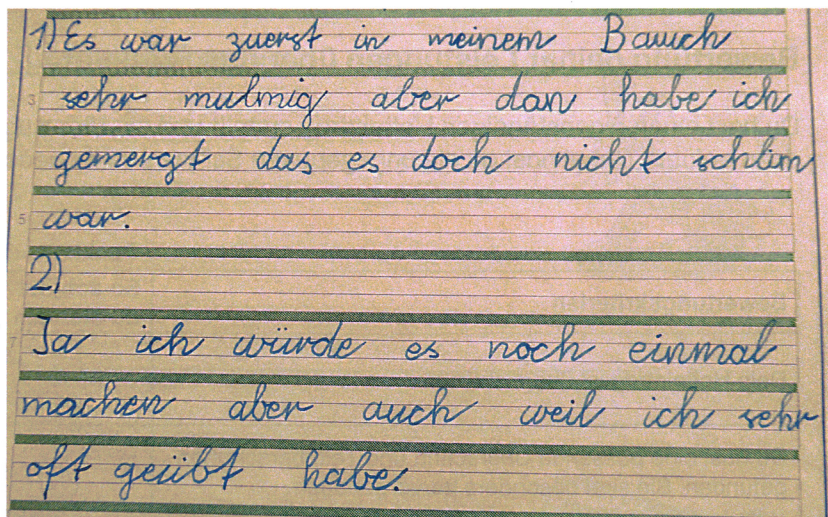 1) Es war zuerst in meinem Bauch
3 sehr mulmig aber dan habe ich
gemergt das es doch nicht schlim
5 war.
2)
7 Ja ich würde es noch einmal
machen aber auch weil ich sehr
oft geübt habe.